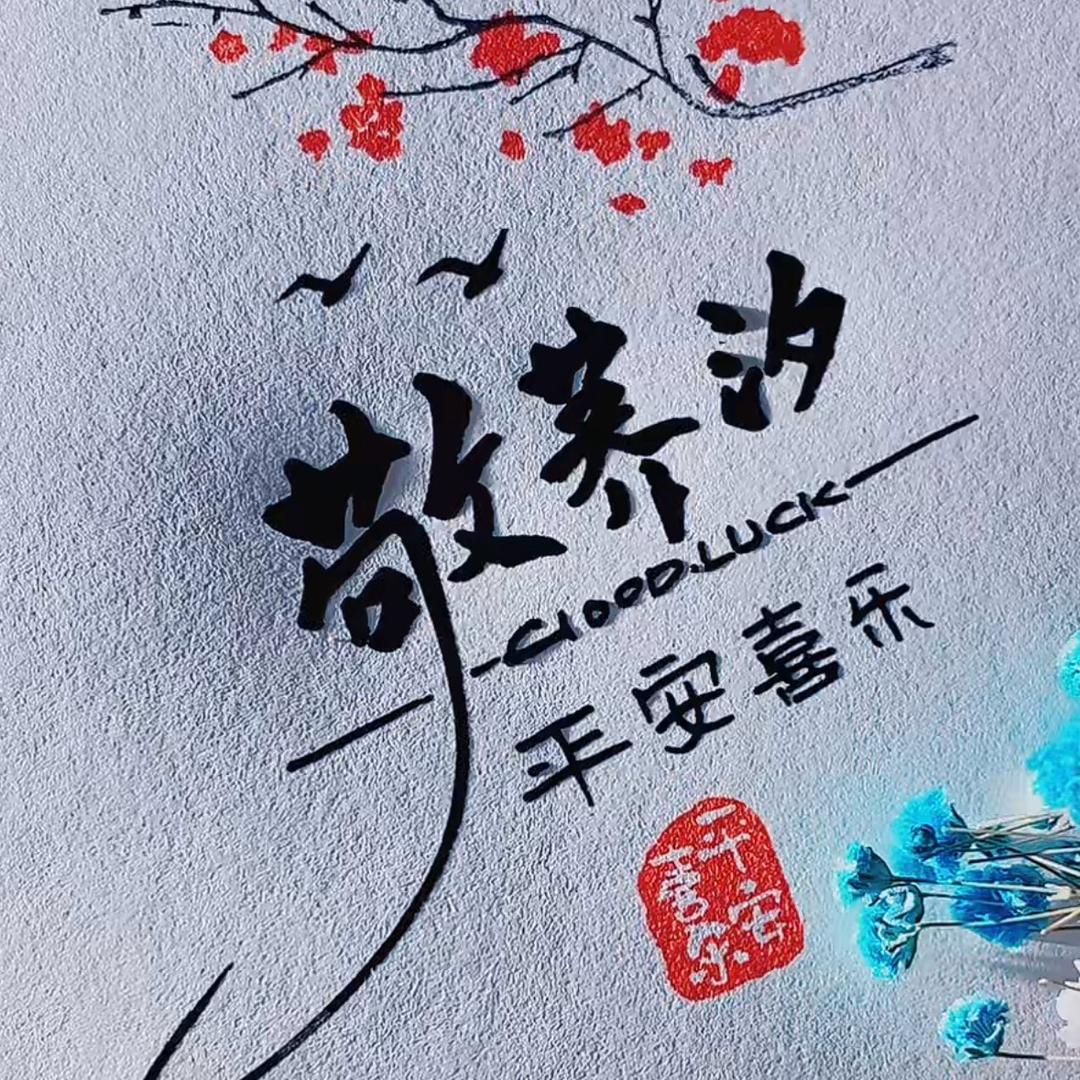 敬养汐
GOOD.LUCK
平安喜乐
平安
喜乐